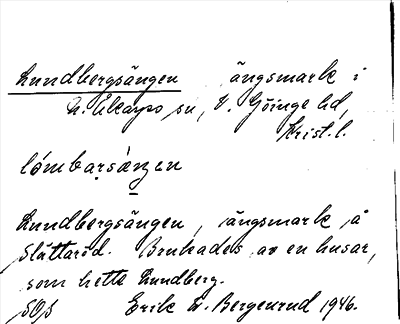 Lundbergsängen ängsmark i
N. Åkarps sn, V. Göinge hd,
Krist. l.
lómbarsàngen
Lundbergsängen, ängsmark å
Slättaröd. Brukades av en husar,
som hette Lundberg.
Erik W. Bergenrud 1946.